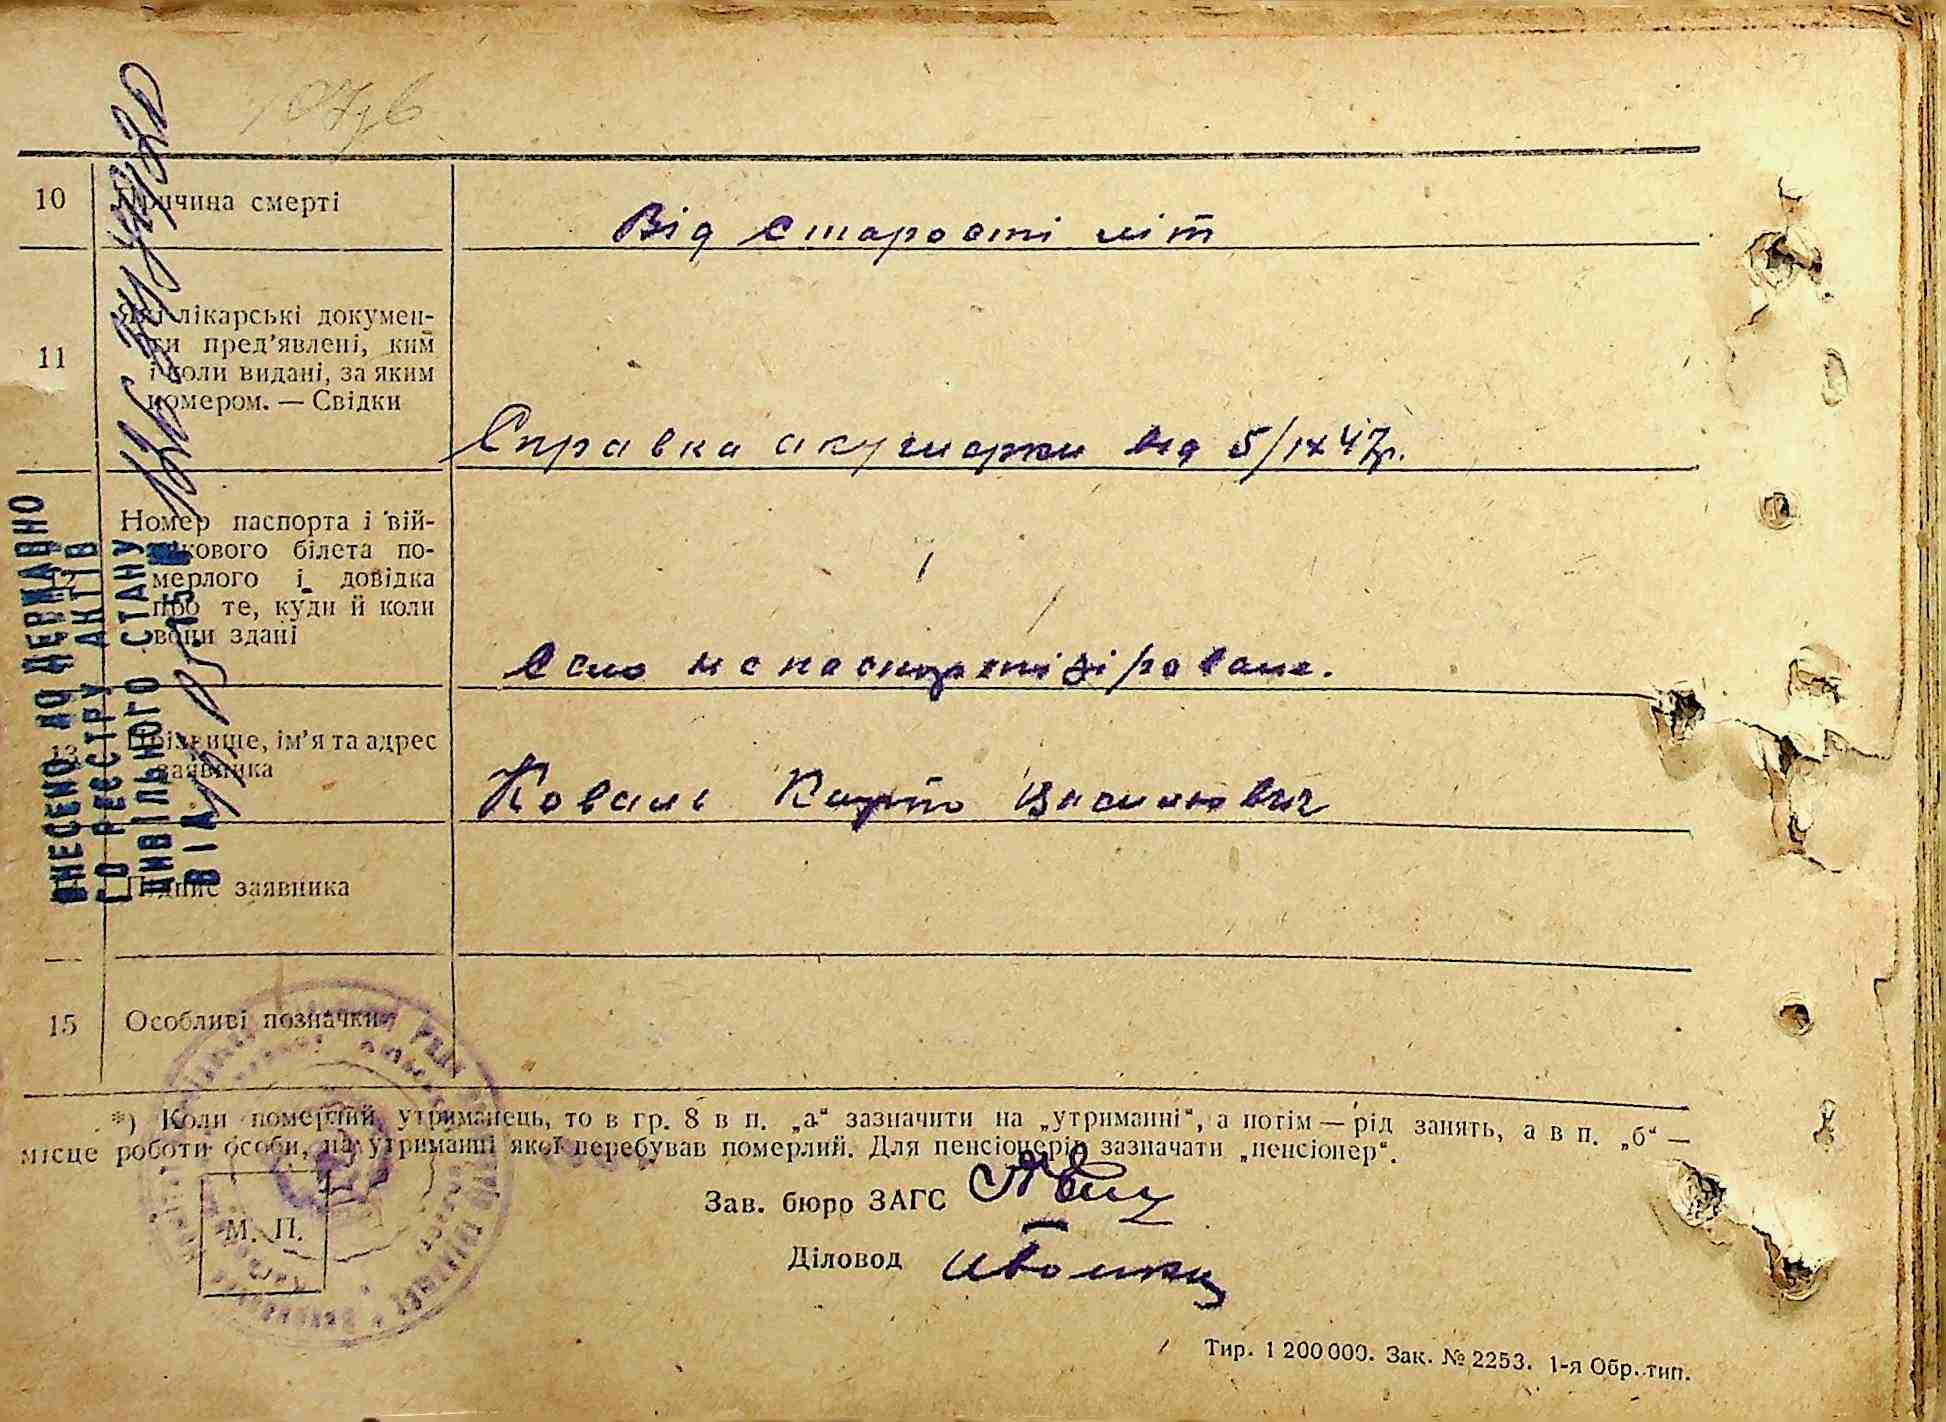 10 Причина смерті
Від старості літ
11 Які лікарські докумен-
ти пред'явлені, ким
і коли видані, за яким
номером. — Свідки
Справка акушерки від 5/IX 47р.
Номер паспорта і вій-
ськового білета по-
мерлого і довідка
про те, куди й коли
вони здані
Село не паспортізіроване.
13 Прізвище, ім'я та адрес
заявника
Коваль Василович
Підпис заявника
15 Особливі позначки
*) Коли померлий утриманець, то в гр. 8 в п. „а“ зазначити на „утриманні“, а потім — рід занять, а в п. „б“ —
місце роботи особи, на утриманні якої перебував померлий. Для пенсіонерів зазначати „пенсіонер“.
Зав. бюро ЗАГС
Діловод
М. П.
Тир. 1 200 000. Зак. № 2253. 1-я Обр. тип.
ВНЕСЕНО ДО ДЕРЖАВНО
ГО РЕЄСТРУ АКТІВ
ЦИВІЛЬНОГО СТАНУ
ВІД